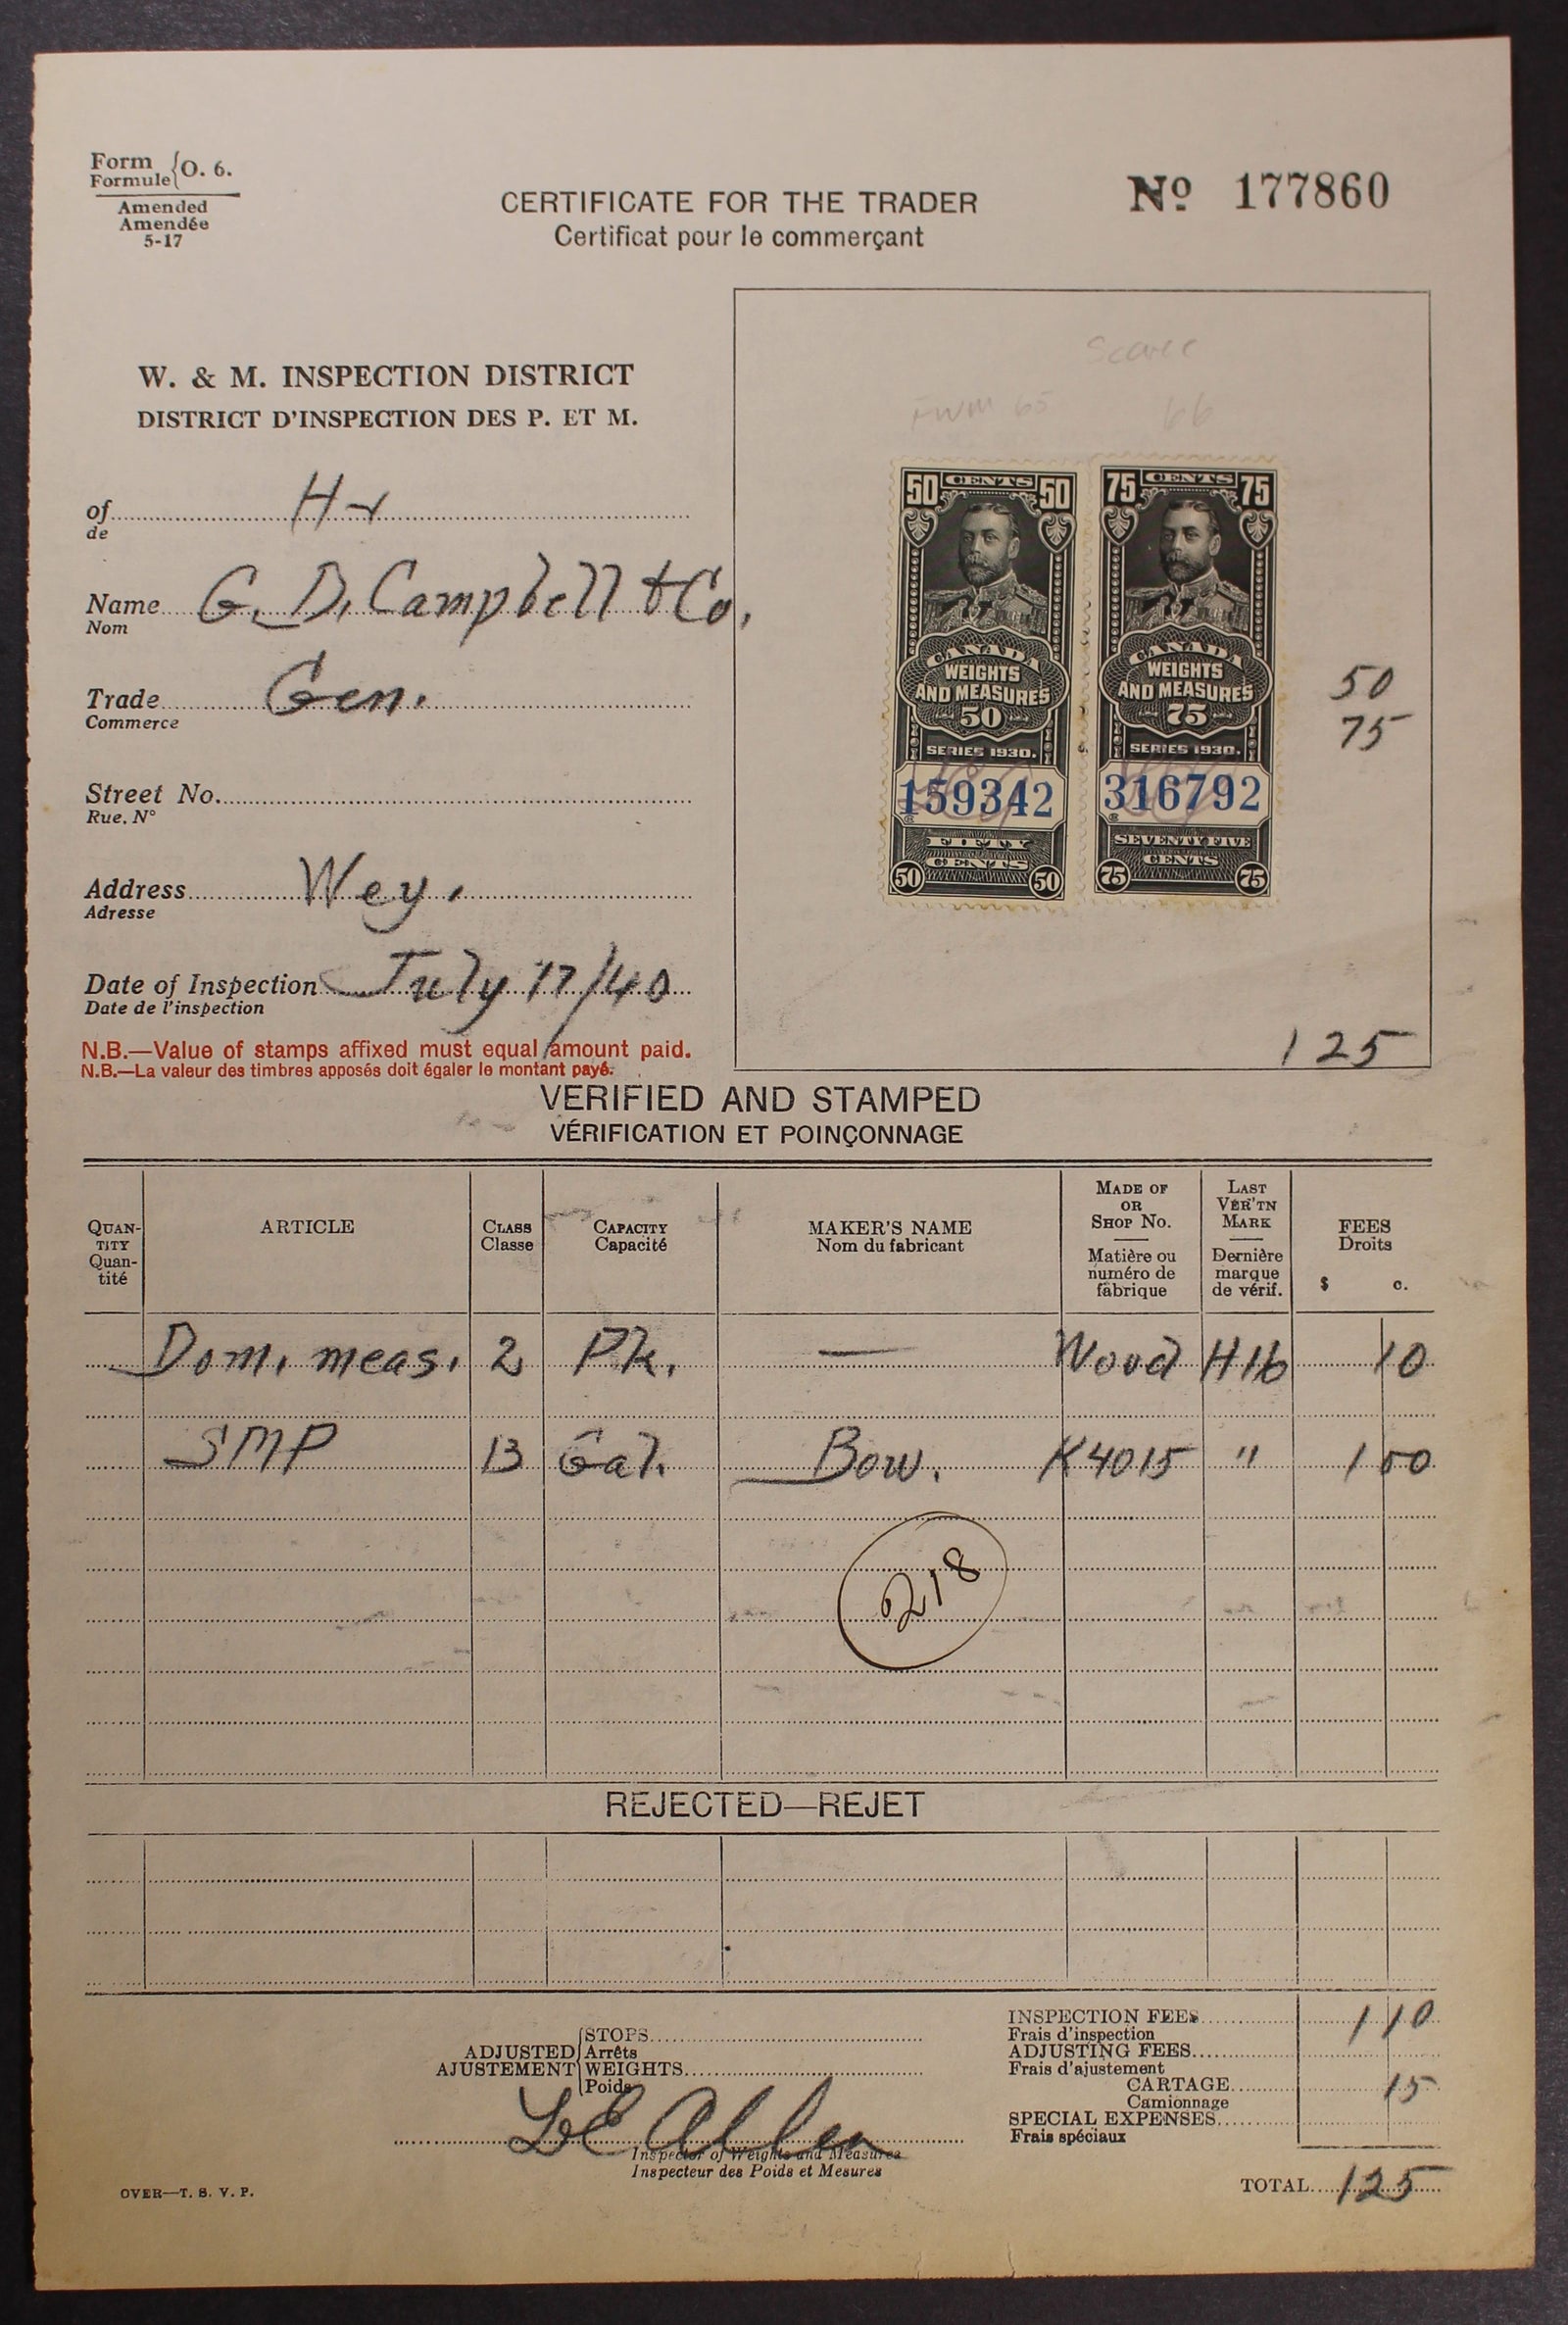 Form
Formule { O. 6.
Amended
Amendée
5-17
CERTIFICATE FOR THE TRADER
Certificat pour le commerçant
Nº 177860
W. & M. INSPECTION DISTRICT
DISTRICT D'INSPECTION DES P. ET M.
of
de
Name G. D. Campbell & Co.
Nom
Trade Gen.
Commerce
Street No.
Rue. N°
Address Wey.
Adresse
Date of Inspection July 17/40
Date de l'inspection
N.B.—Value of stamps affixed must equal amount paid.
N.B.—La valeur des timbres apposés doit égaler le montant payé.
Scarce
FWM 65 66
50 CENTS 50
CANADA
WEIGHTS
AND MEASURES
50
SERIES 1930.
159342
FIFTY
CENTS
50 50
75 CENTS 75
CANADA
WEIGHTS
AND MEASURES
75
SERIES 1930.
316792
SEVENTY FIVE
CENTS
75 75
50
75
125
VERIFIED AND STAMPED
VÉRIFICATION ET POINÇONNAGE
QUAN-
TITY
Quan-
tité
ARTICLE
CLASS
Classe
CAPACITY
Capacité
MAKER'S NAME
Nom du fabricant
MADE OF
OR
SHOP No.
Matière ou
numéro de
fabrique
LAST
VER'TN
MARK
Dernière
marque
de vérif.
FEES
Droits
$ c.
Dom. meas. 2 Pk. — Wood H16 10
SMP 13 Gal. Bow. K4015 " 1 00
218
REJECTED—REJET
ADJUSTED
AJUSTEMENT
STOPS
Arrêts
WEIGHTS
Poids
INSPECTION FEES 1 10
Frais d'inspection
ADJUSTING FEES
Frais d'ajustement
CARTAGE 15
Camionnage
SPECIAL EXPENSES
Frais spéciaux
Allen
Inspector of Weights and Measures
Inspecteur des Poids et Mesures
OVER—T. S. V. P.
TOTAL 125